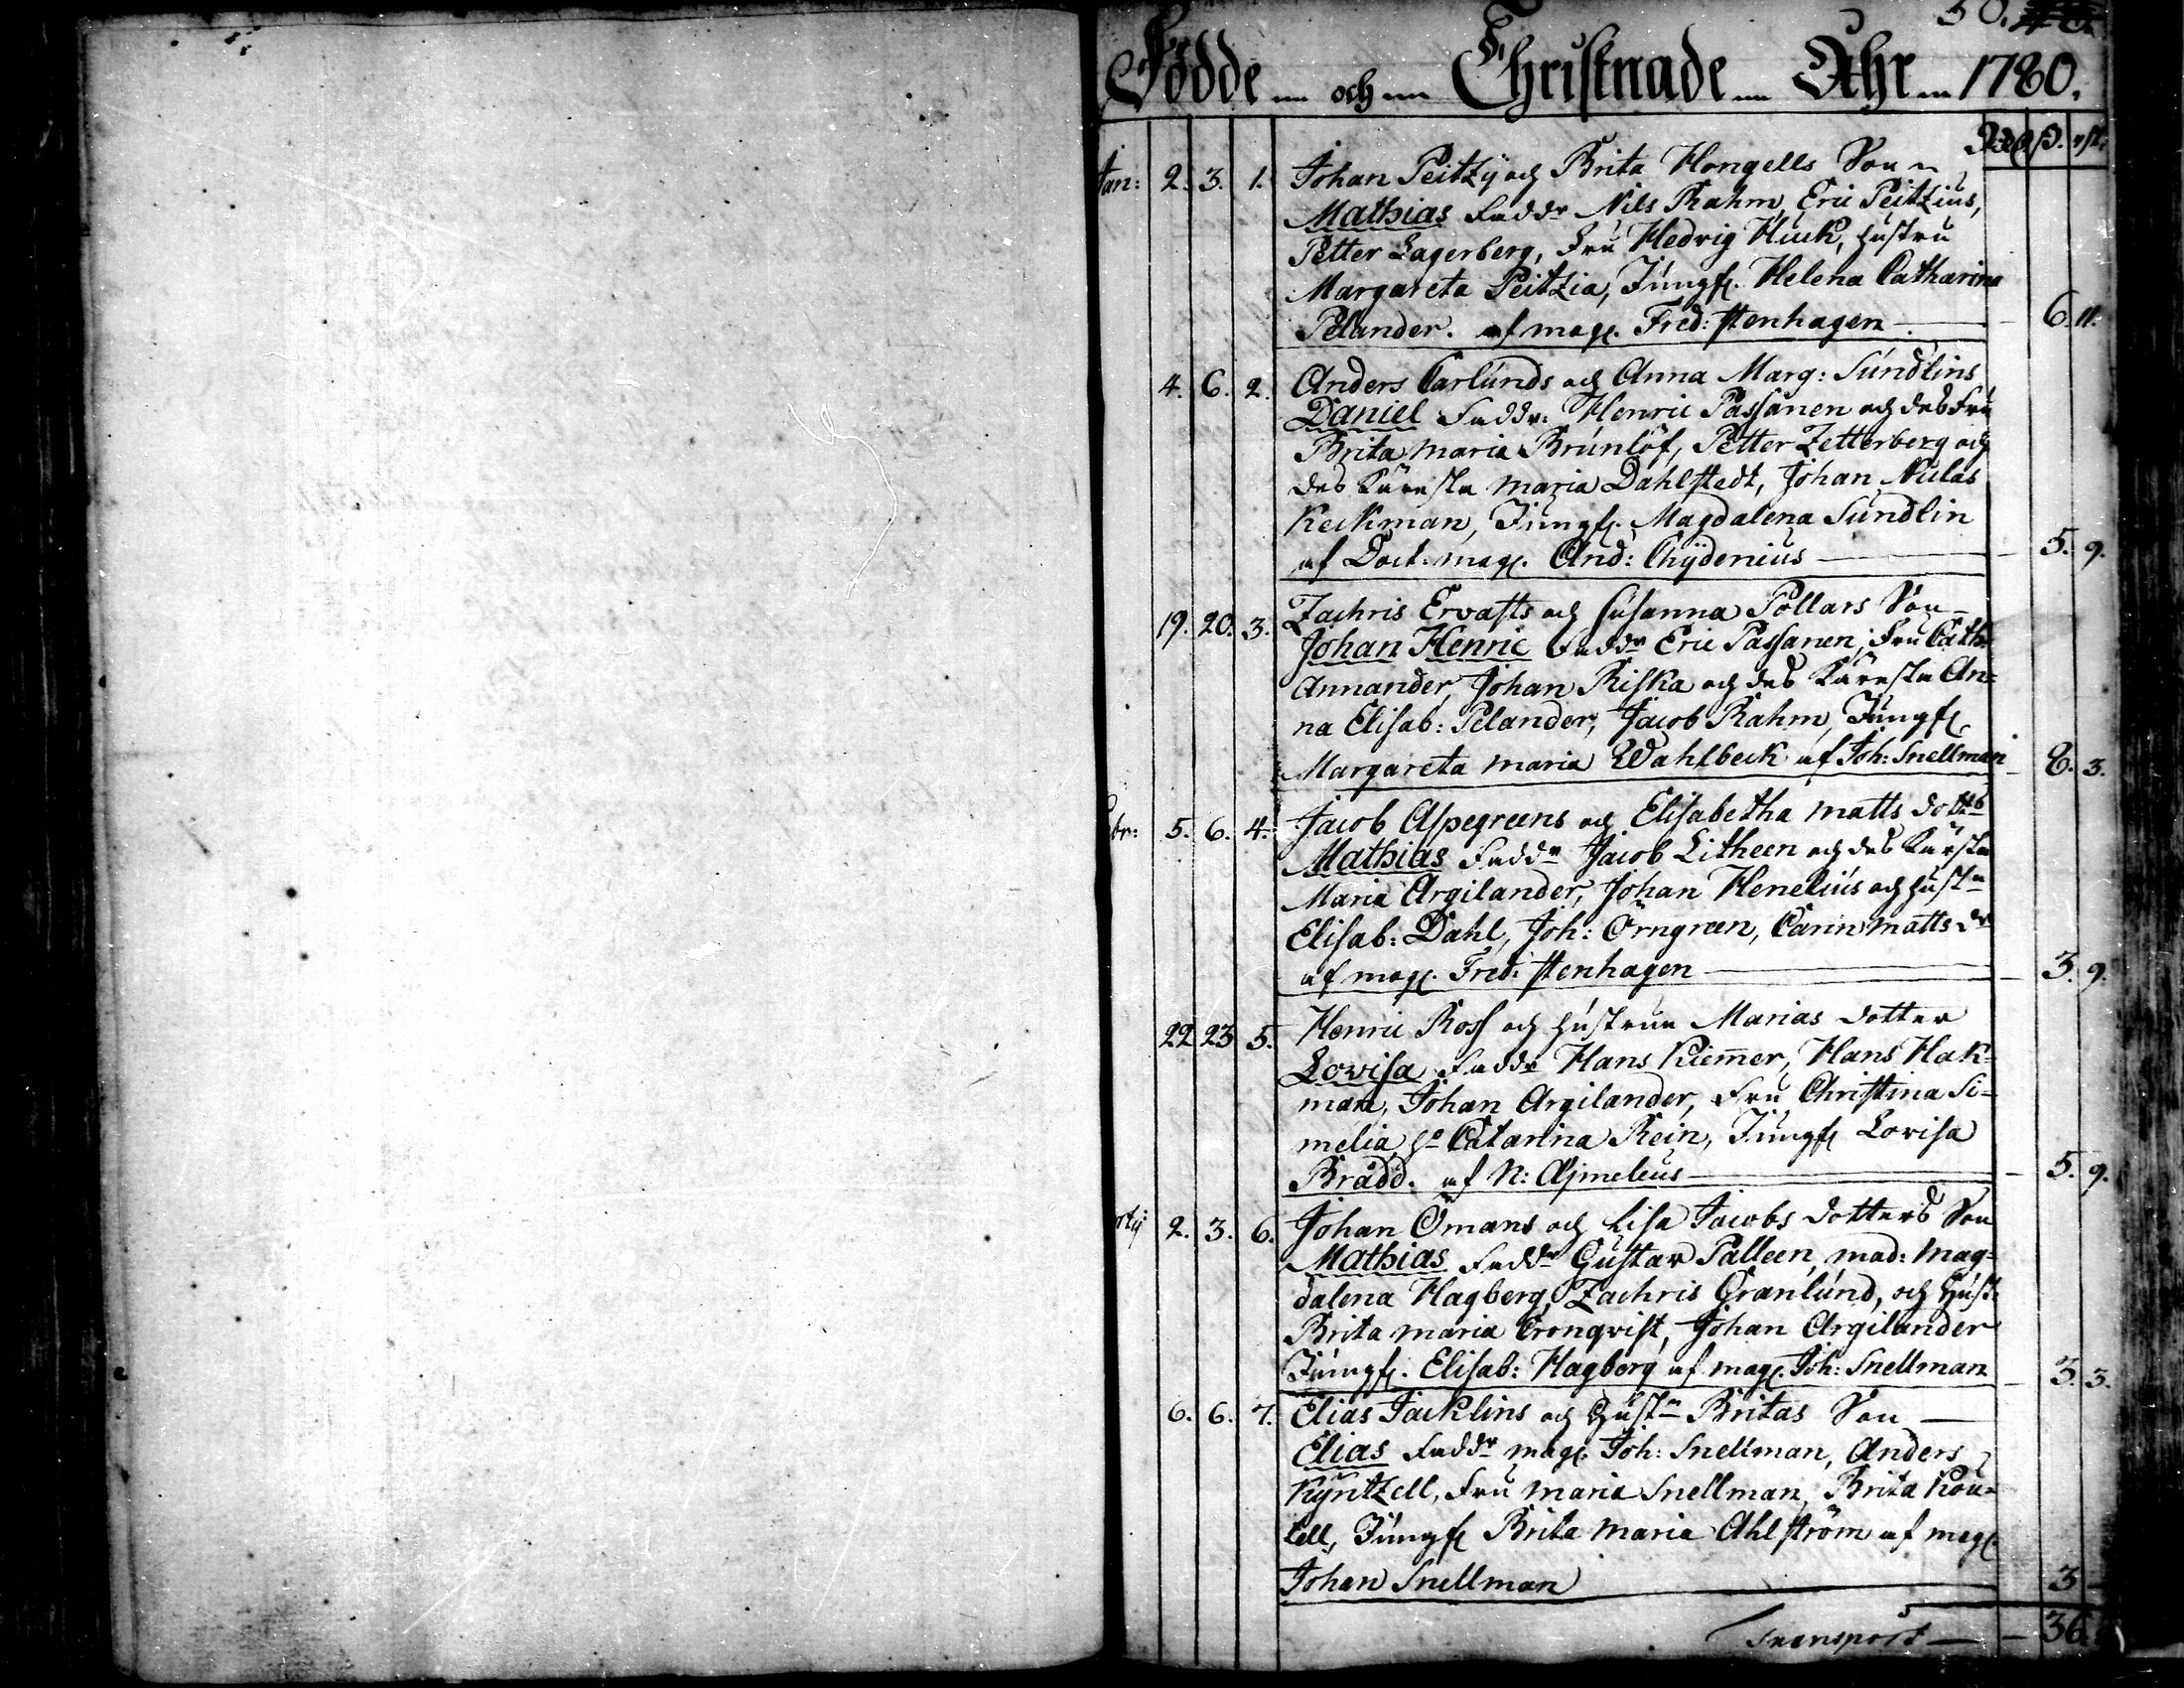 30.
Födde och Christnade Åhr 1780.
Jan: 2. 3. 1. Johan Peitzij och Brita Hongells Son
Mathias Faddr Nils Rahm, Eric Peitzius,
Petter Lagerberg, Fru Hedvig Huck, hustru
Margareta Peitzia, Jungf. Helena Catharina
Pelander. af mag. Fred: Stenhagen 6. 11.
4. 6. 2. Anders Carlunds och Anna Marg: Sundlins
Daniel Faddr: Henric Passanen och des Fru
Brita Maria Brunlöf, Petter Zetterberg och
des Käresta Maria Dahlstedt, Johan Niclas
Keckman, Jungf. Magdalena Sundlin
af Doct: mag. And: Chydenius 5. 9.
19. 20. 3. Zachris Ervasts och Susanna Pollars Son
Johan Henric Faddr Eric Passanen, Fru Cath:
Annander, Johan Riska och des Käresta An=
na Elisab: Pelander, Jacob Rahm, Jungf.
Margareta Maria Wahlbeck af Joh: Snellman 8. 3.
br: 5. 6. 4. Jacob Alpegreens och Elisabetha Matts dotts
Mathias Faddr Jacob Litheen och des Kärsta
Maria Argilander, Johan Henelius och hust
Elisab: Dahl, Joh: Örngreen, Carin Matts dr
af mag. Fred: Stenhagen 3. 9.
22 23 5. Henric Ross och hustrun Marias dotter
Lovisa Faddr Hans Kiemer, Hans Hak=
man, Johan Argilander, Fru Christina Si=
melia, Catarina Rein, Jungf Lovisa
Brådd. af N: Aejmeleus 5. 9.
rtij 2. 3. 6. Johan Ömans och Lisa Jacobs dotters Son
Mathias Faddr Gustav Palleen, mad: Mag=
dalena Hagberg, Zachris Granlund, och Hust:
Brita Maria Cronqvist, Johan Argilander
Jungf. Elisab: Hagberg af mag. Joh: Snellman 3. 3.
6. 6. 7. Elias Jacklins och Hustn Britas Son
Elias Faddr mag. Joh: Snellman, Anders
Kyntzell, Fru Maria Snellman, Brita Kou=
tell, Jungf Brita Maria Ahlström af mag.
Johan Snellman 3
Transport 36.